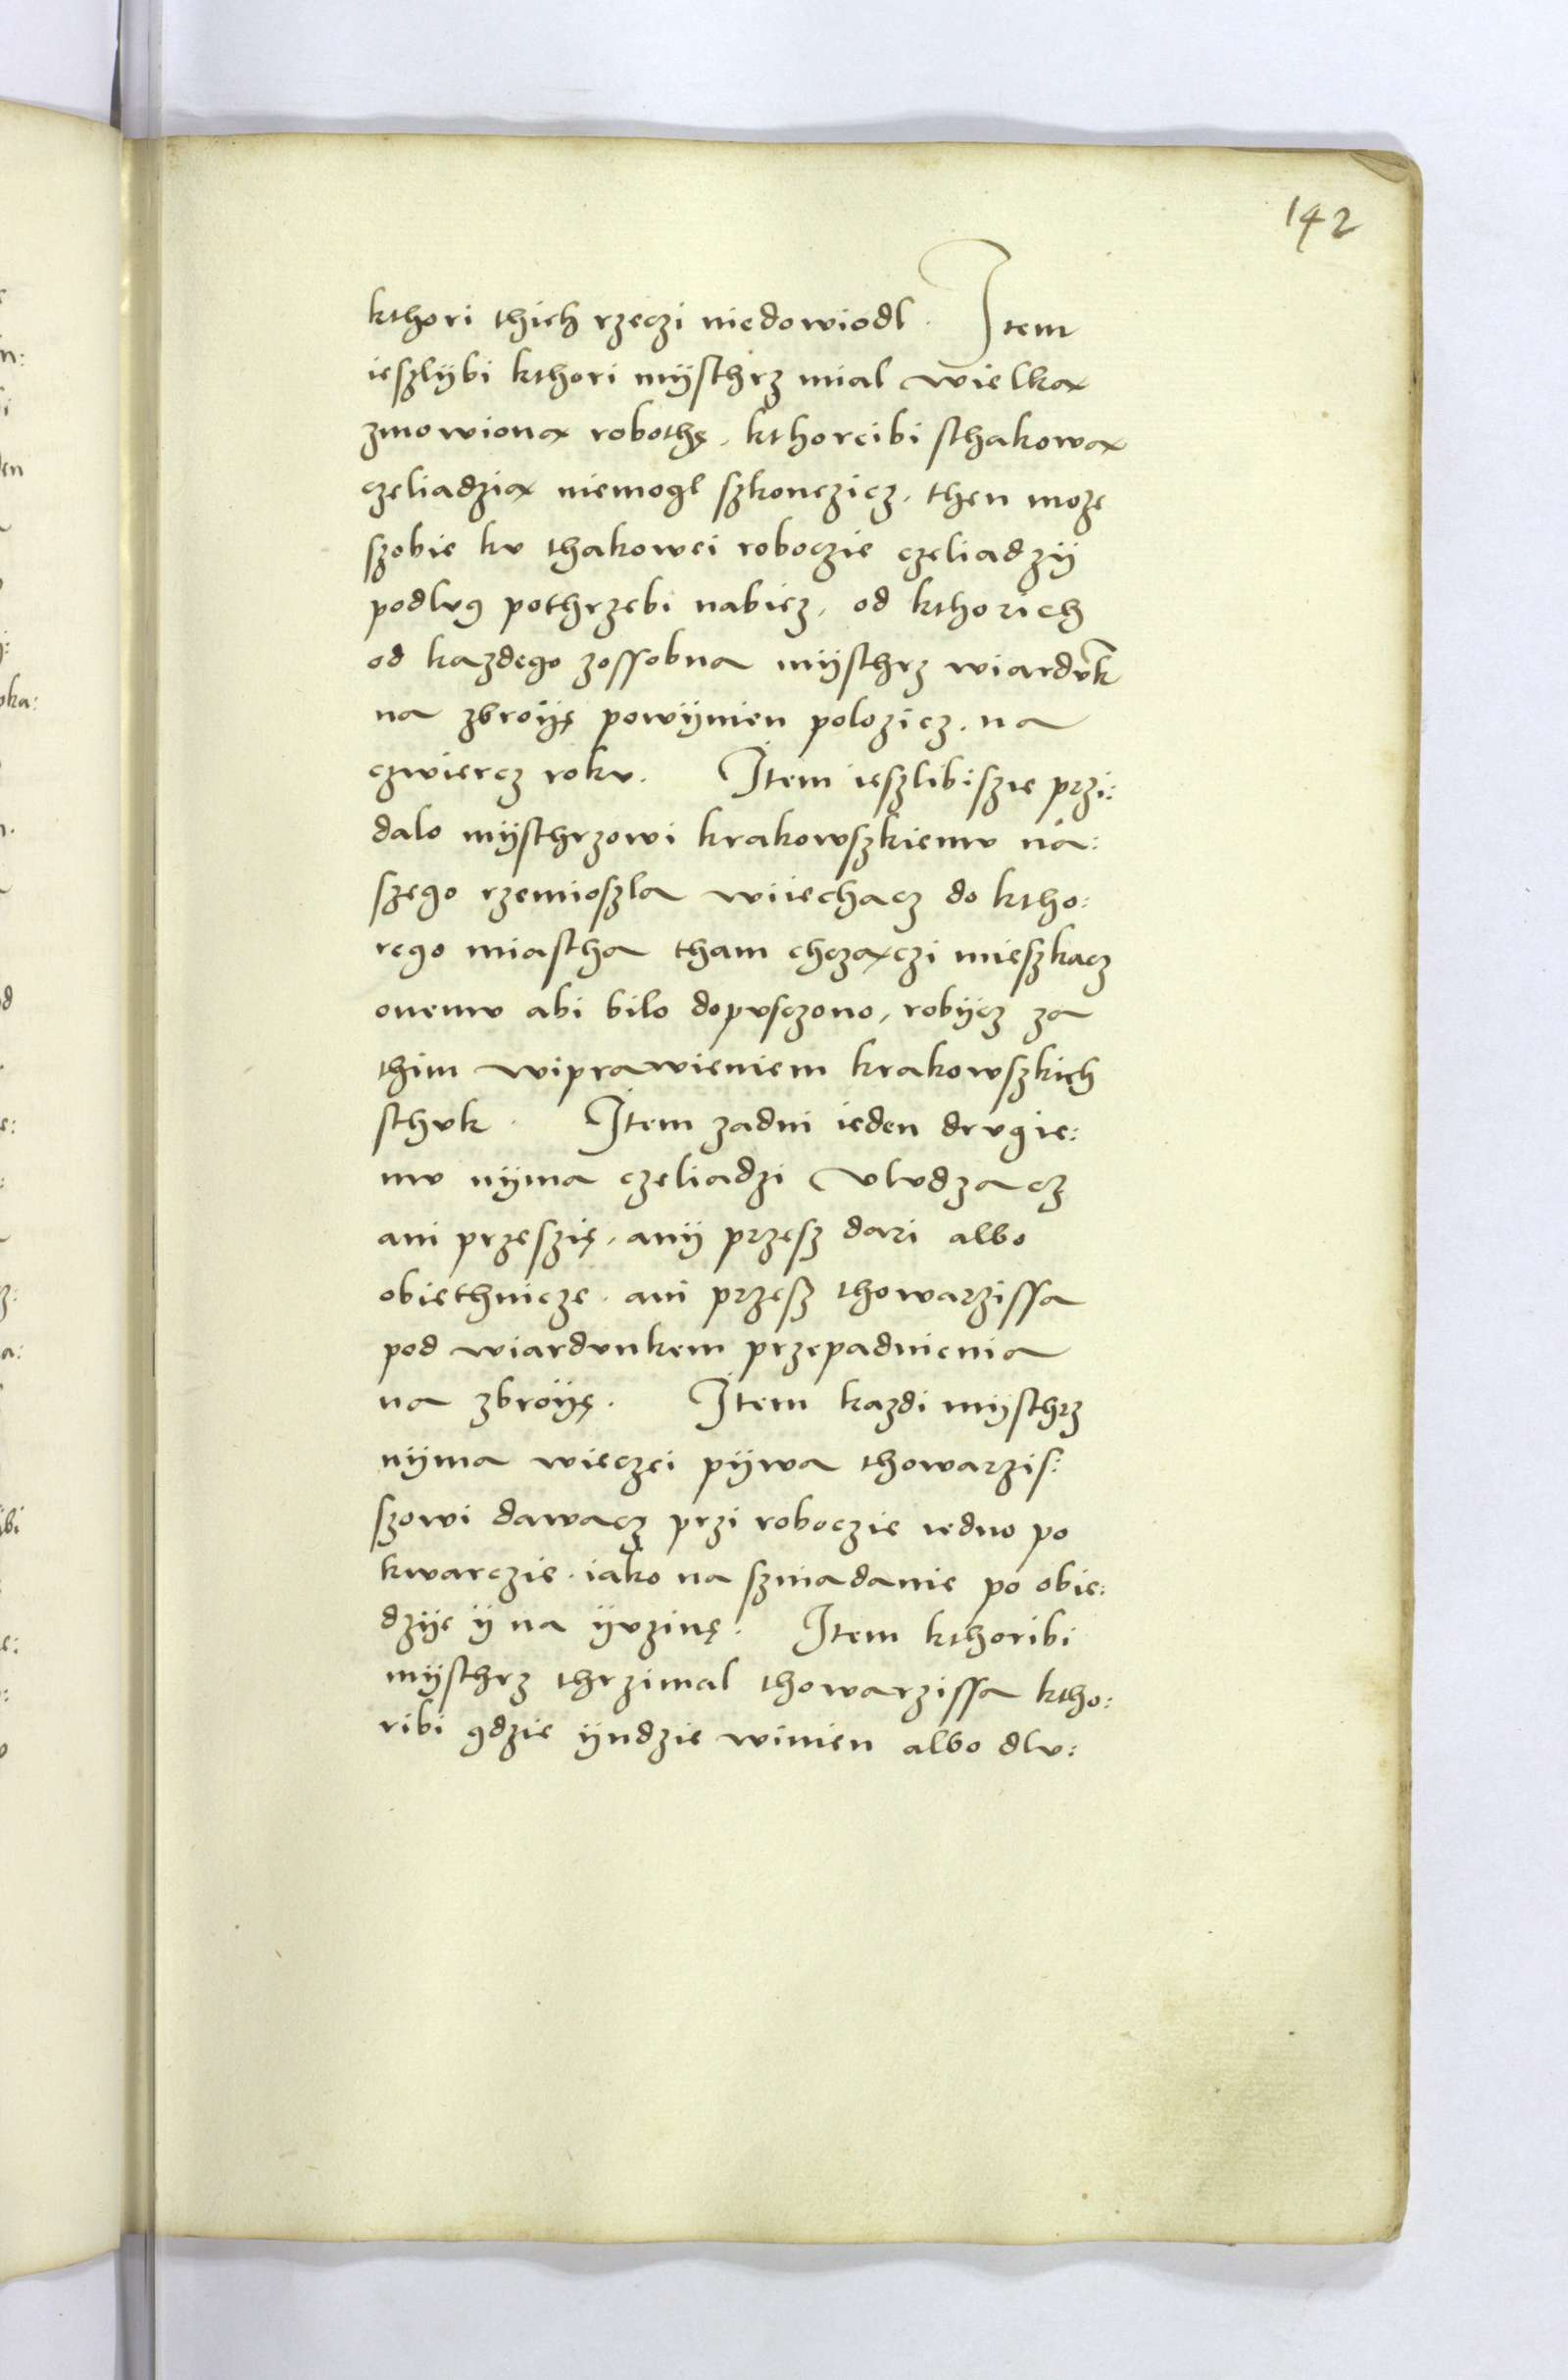 142
kthori thich rzeczi niedowiodl. Item
ieszlÿbi kthori mÿsthrz mial wielką
zmowioną robothę, kthoreibi sthakową
czeliadzią niemogl szkonczicz, then moze
szobie kv thakowei roboczie czeliadzÿ
podlvg pothrzebi nabicz, od kthorich
od kazdego zossobna mÿsthrz wiardvk
na zbroÿę powÿnien polozicz, na
czwiercz rokv. Item ieszlibiszie przi:
dalo mÿsthrzowi krakowszkiemv na:
szego rzemioszla wiiechacz do ktho:
rego miastha tham chczączi mieszkacz
onemv abi bilo dopvsczono, robÿcz za
thim wiprawieniem krakowszkich
sthvk. Item zadni ieden drvgie:
mv nÿma czeliadzi vlvdzacz
ani przeszię, anÿ przesz dari albo
obiethnicze, ani przesz thowarzissa
pod wiardvnkem przepadnienia
na zbroÿę. Item kazdi mÿsthrz
nÿma wieczei pÿwa thowarzis:
szowi dawacz przi roboczie iedno po
kwarczie, iako na szniadanie po obie:
dzÿe ÿ na ÿvzinę. Item kthoribi
mÿsthrz thrzimal thowarzissa ktho:
ribi gdzie ÿndzie winien albo dlv: